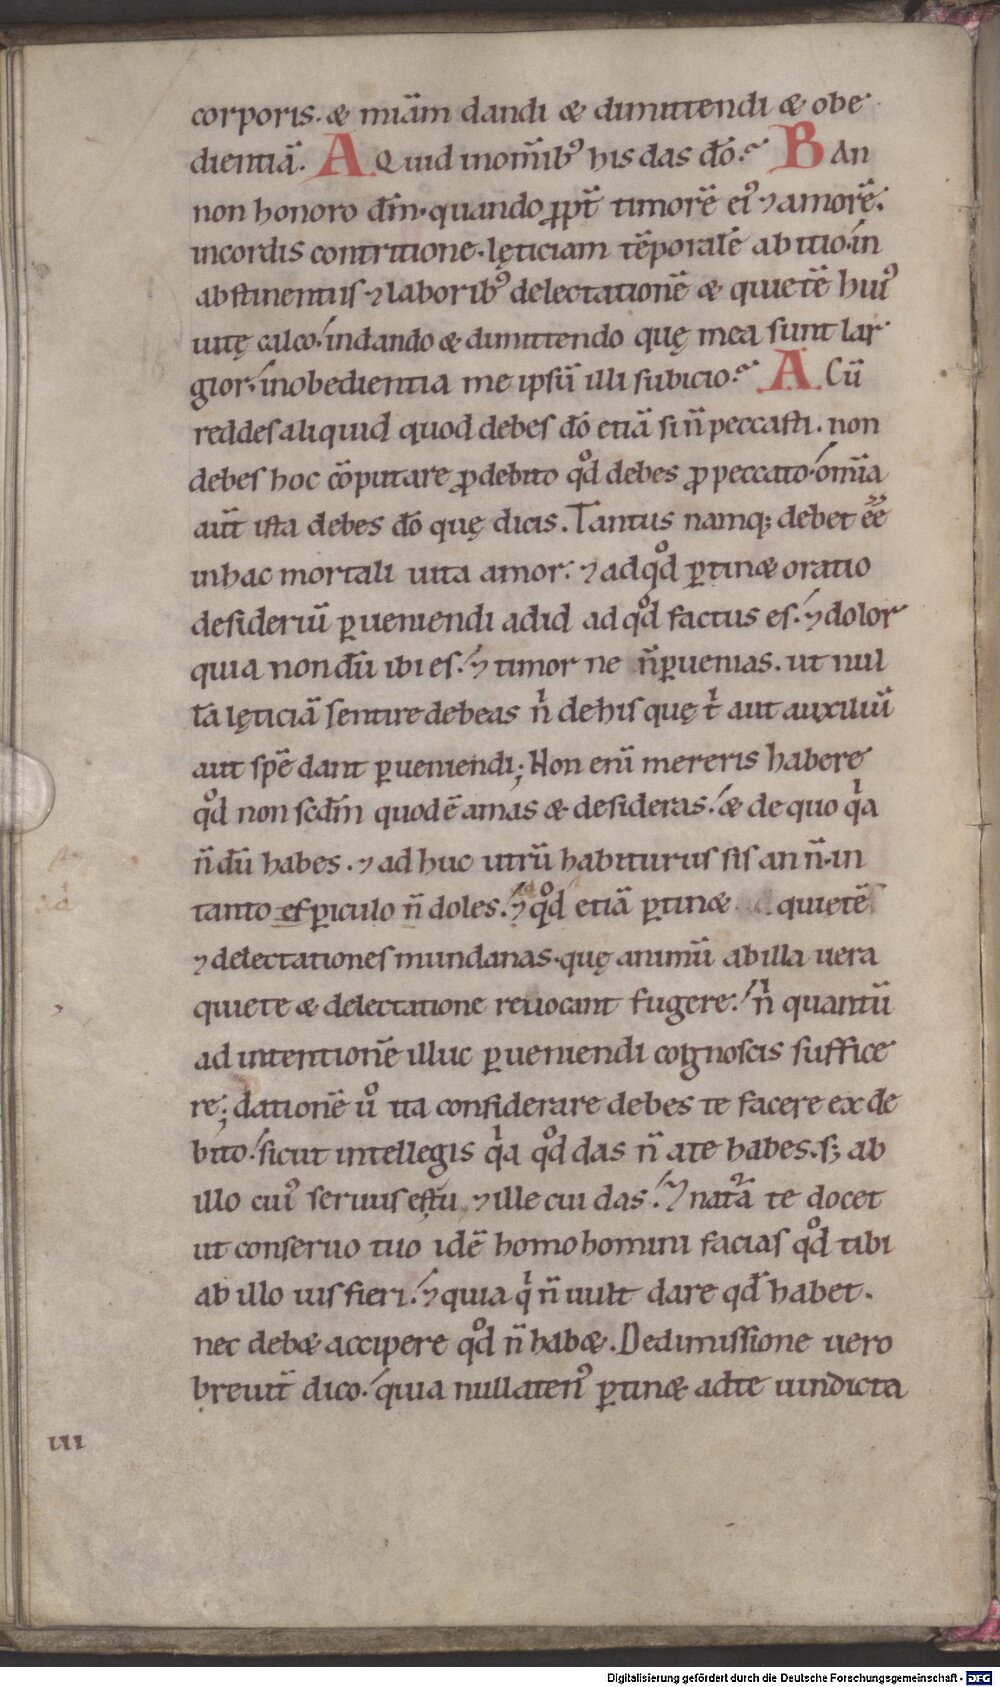 corporis. & miām dandi & dimittendi & obe
dientiā. A Quid inom̄ib' his das dō? B An
non honoro dn̄m. quando ꝓpt̄ timorē ei' ⁊ amorē.
incordis contritione. lęticiam tēporalē abitio. in
abstinentiis ⁊ laborib' delectationē & quietē hui'
uitę calco. indando & dimittendo quę mea sunt lar
gior. inobedientia me ipsū illi subicio? A Cū
reddes aliquid quod debes dō etiā si n̄ peccasti. non
debes hoc cōputare ꝓ debito qd̊ debes ꝓ peccato. om̄ia
aūt ista debes dō quę dicis. Tantus namq; debet eē
inhac mortali uita amor. ⁊ adqd̊ ꝑtin& oratio
desideriū ꝑueniendi adid ad qd̊ factus es. ⁊ dolor
quia nondū ibi es. ⁊ timor ne n̄ ꝑuenias. ut nul
lā lęticiā sentire debeas nͥ dehis quę tͥ aut auxiliū
aut spē dant ꝑueniendi; Non enī mereris habere
qd̊ non scd̄m quod ē amas & desideras. & de quo qͥa
n̄dū habes. ⁊ ad huc utrū habiturus sis an n̄. in
tanto es ꝑiculo n̄ doles. ⁊ qd̊ etiā ꝑtin& quietē
⁊ delectationes mundanas. quę animū abilla uera
quiete & delectatione reuocant fugere. nͥ quantū
ad intentionē illuc ꝑueniendi cognoscis suffice
re; dationē ů ita considerare debes te facere ex de
bito. sicut intellegis qͥa qd̊ das n̄ ate habes. s; ab
illo cui' seruus es tu ⁊ ille cui das. ⁊ natᷓa te docet
ut conseruo tuo idē homo homini facias qd̊ tibi
ab illo uis fieri. ⁊ quia qͥ n̄ uult dare qd̄ habet.
nec deb& accipere qd̊ n̄ hab&. Dedimissione uero
breuit̄ dico. quia nullaten' ꝑtin& adte uindicta
iii
Digitalisierung gefördert durch die Deutsche Forschungsgemeinschaft - DFG